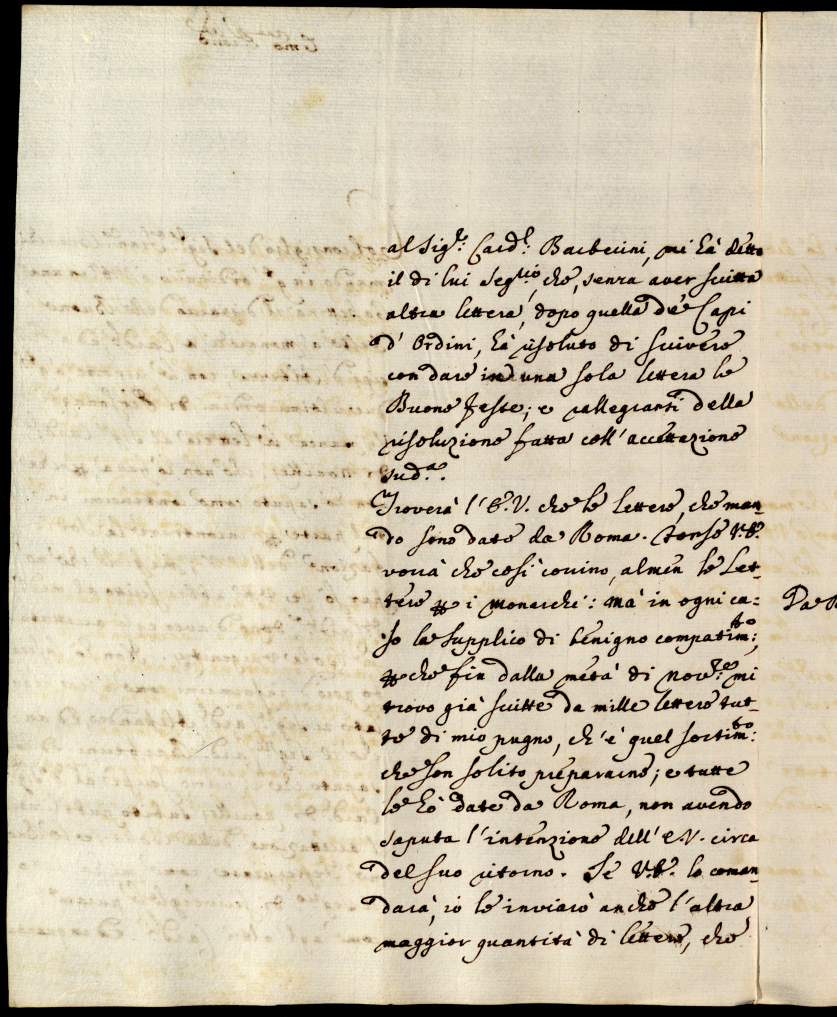 al Sig.^r Card.^l Barberini, mi hà detto
il di lui Seg.^rio, che, senza aver scritta
altra lettera, dopo quella de' Capi
d'Ordini, hà risoluto di scivere
con dare in una sola lettera le
Buone Feste; e rallegranti della
risoluzione fatta coll'accettazione
sud.^a.
Troverà l'E.V. che le lettere, che man=
do sono date da Roma. Forse V.E.
vorrà che così corrino, almen le Let=
tere p i monarchi: mà in ogni ca=
so la supplico di benigno compatim.^to;
pche fin dalla metà di Nov.^re mi
trovo già scritte da mille lettere tut=
te di mio pugno, ch'è quel sortim.^to
che son solito prepararne; e tutte
le hò date da Roma, non avendo
saputa l'intenzione dell'E.V. circa
del suo ritorno. Se V.E. lo coman
darà, io le inviarò anche l'altra
maggior quantità di lettere, che